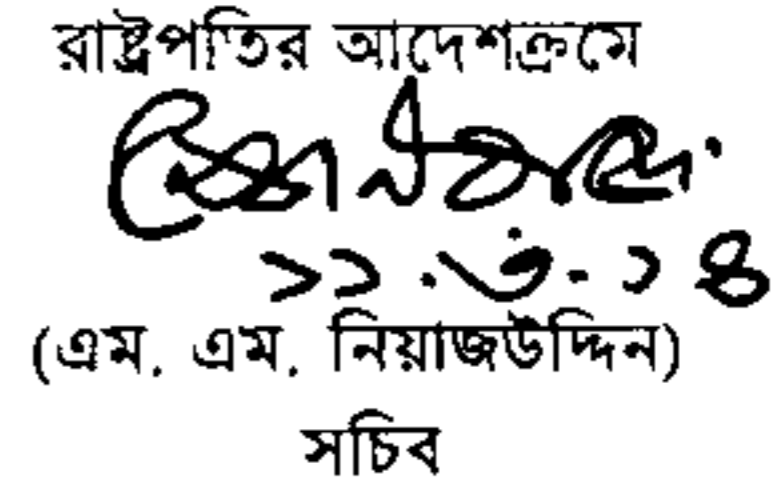 রাষ্ট্রপতির আদেশক্রমে
১১.৩.১৪
(এম. এম. নিয়াজউদ্দিন)
সচিব